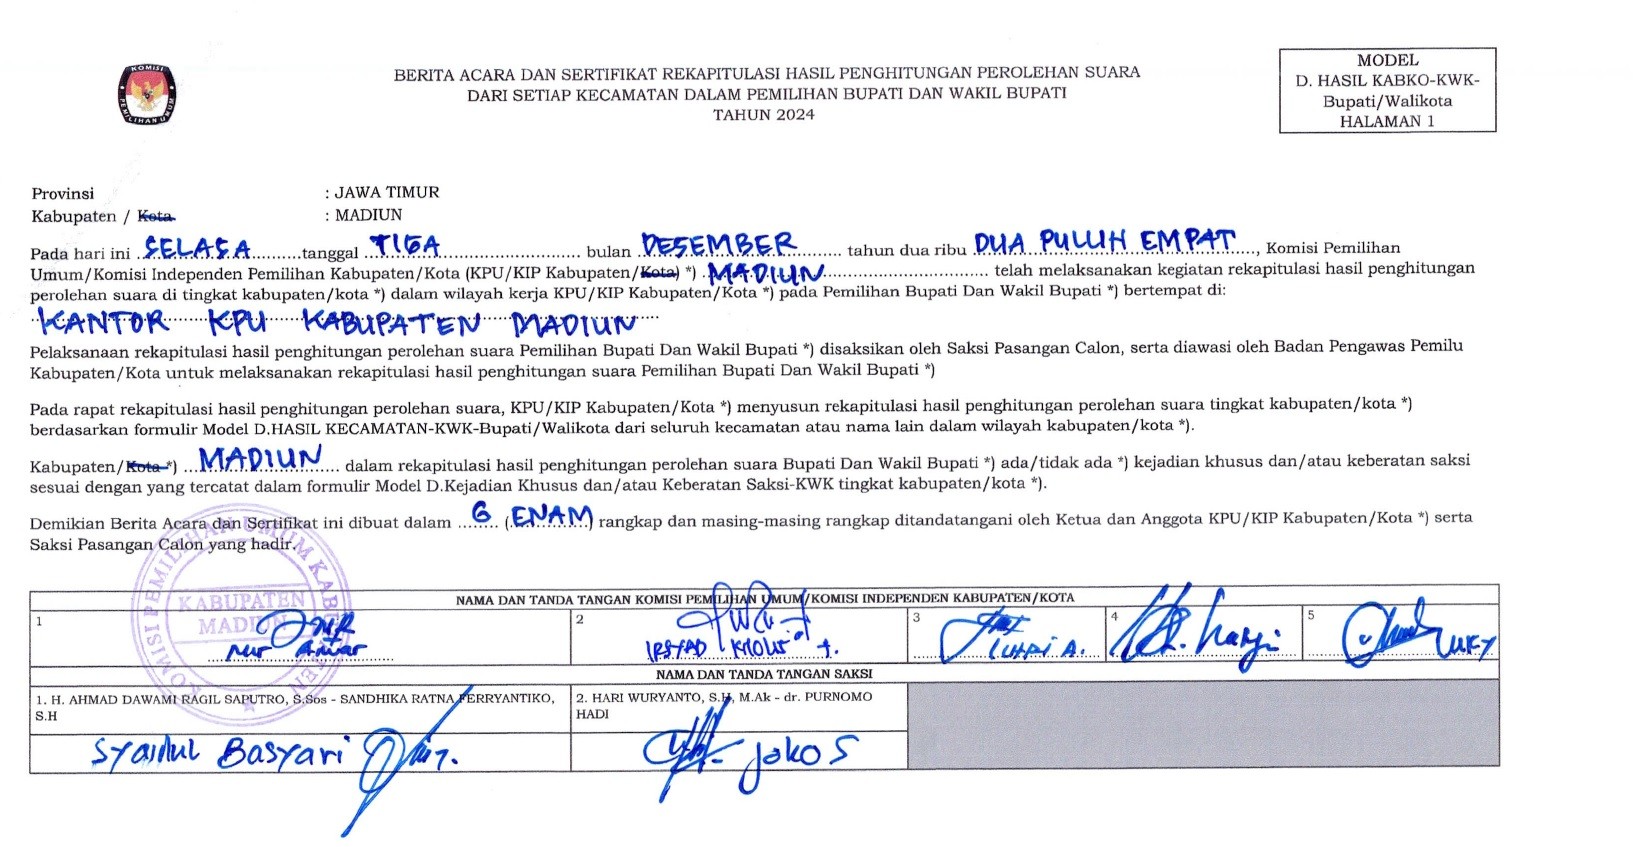 KOMISI
PEMILIHAN UMUM
BERITA ACARA DAN SERTIFIKAT REKAPITULASI HASIL PENGHITUNGAN PEROLEHAN SUARA
DARI SETIAP KECAMATAN DALAM PEMILIHAN BUPATI DAN WAKIL BUPATI
TAHUN 2024
MODEL
D. HASIL KABKO-KWK-
Bupati/Walikota
HALAMAN 1
Provinsi : JAWA TIMUR
Kabupaten / Kota : MADIUN
Pada hari ini SELASA tanggal TIGA bulan DESEMBER tahun dua ribu DUA PULUH EMPAT, Komisi Pemilihan
Umum/Komisi Independen Pemilihan Kabupaten/Kota (KPU/KIP Kabupaten/Kota) *) MADIUN telah melaksanakan kegiatan rekapitulasi hasil penghitungan
perolehan suara di tingkat kabupaten/kota *) dalam wilayah kerja KPU/KIP Kabupaten/Kota *) pada Pemilihan Bupati Dan Wakil Bupati *) bertempat di:
KANTOR KPU KABUPATEN MADIUN
Pelaksanaan rekapitulasi hasil penghitungan perolehan suara Pemilihan Bupati Dan Wakil Bupati *) disaksikan oleh Saksi Pasangan Calon, serta diawasi oleh Badan Pengawas Pemilu
Kabupaten/Kota untuk melaksanakan rekapitulasi hasil penghitungan suara Pemilihan Bupati Dan Wakil Bupati *)
Pada rapat rekapitulasi hasil penghitungan perolehan suara, KPU/KIP Kabupaten/Kota *) menyusun rekapitulasi hasil penghitungan perolehan suara tingkat kabupaten/kota *)
berdasarkan formulir Model D.HASIL KECAMATAN-KWK-Bupati/Walikota dari seluruh kecamatan atau nama lain dalam wilayah kabupaten/kota *).
Kabupaten/Kota *) MADIUN dalam rekapitulasi hasil penghitungan perolehan suara Bupati Dan Wakil Bupati *) ada/tidak ada *) kejadian khusus dan/atau keberatan saksi
sesuai dengan yang tercatat dalam formulir Model D.Kejadian Khusus dan/atau Keberatan Saksi-KWK tingkat kabupaten/kota *).
Demikian Berita Acara dan Sertifikat ini dibuat dalam 6 (ENAM) rangkap dan masing-masing rangkap ditandatangani oleh Ketua dan Anggota KPU/KIP Kabupaten/Kota *) serta
Saksi Pasangan Calon yang hadir.
KOMISI PEMILIHAN UMUM KABUPATEN
KABUPATEN
MADIUN
NAMA DAN TANDA TANGAN KOMISI PEMILIHAN UMUM/KOMISI INDEPENDEN KABUPATEN/KOTA
1 Nur Anwar
2
3 LUHRI A.
4
5
NAMA DAN TANDA TANGAN SAKSI
1. H. AHMAD DAWAMI RAGIL SAPUTRO, S.Sos - SANDHIKA RATNA FERRYANTIKO,
S.H
2. HARI WURYANTO, S.H, M.Ak - dr. PURNOMO
HADI
Syaidul Basyari
Joko S